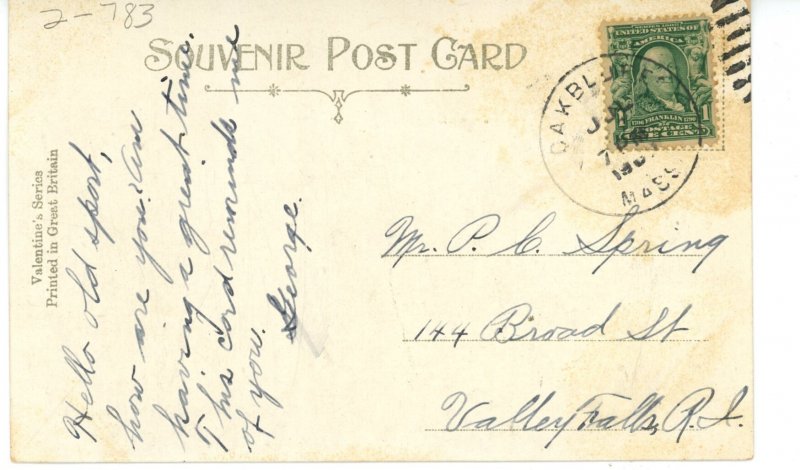 2-783
SOUVENIR POST CARD
Valentine's Series
Printed in Great Britain
Hello old sport,
how are you? Am
having a great time.
This card reminds me
of you. George.
SERIES 1902
UNITED STATES OF
AMERICA
1 FRANKLIN 1
1706 1790
POSTAGE
ONE CENT
OAK BLUFFS
MASS
Mr. P. C. Spring
144 Broad St
Valley Falls, R.I.